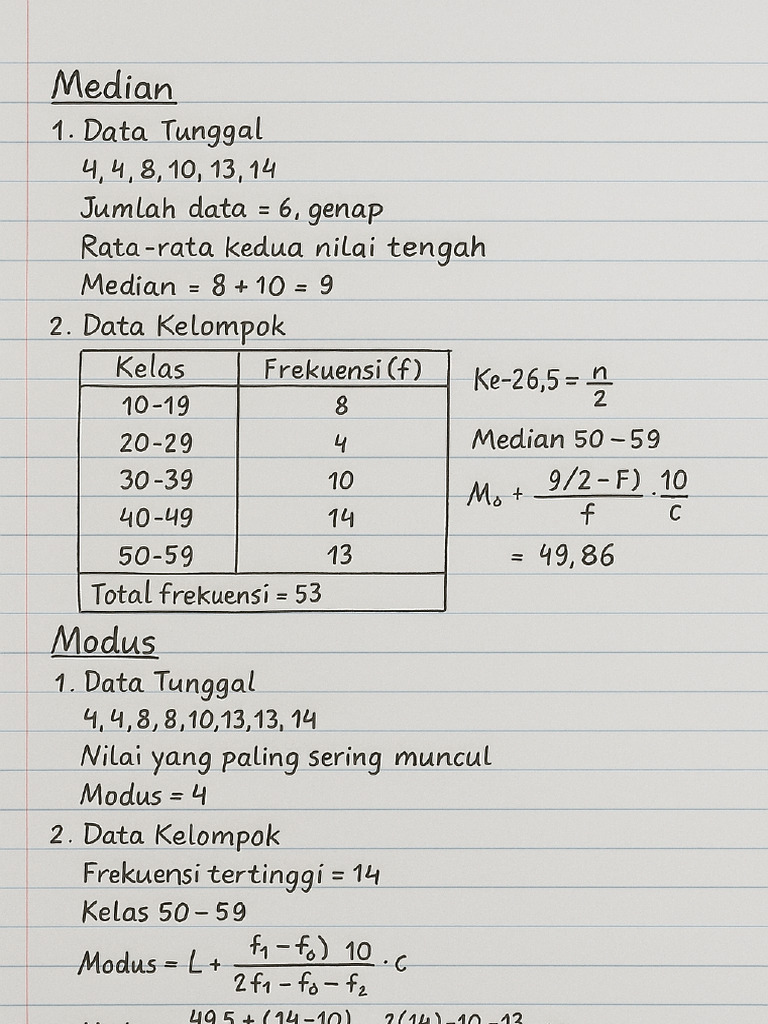 Median
1. Data Tunggal
4, 4, 8, 10, 13, 14
Jumlah data = 6, genap
Rata-rata kedua nilai tengah
Median = 8 + 10 = 9
2. Data Kelompok
Kelas Frekuensi (f)
10-19 8
20-29 4
30-39 10
40-49 14
50-59 13
Total frekuensi = 53
Ke-26,5 = n/2
Median 50 – 59
M₀ + 9/2 - F) / f . 10/c
= 49,86
Modus
1. Data Tunggal
4, 4, 8, 8, 10, 13, 13, 14
Nilai yang paling sering muncul
Modus = 4
2. Data Kelompok
Frekuensi tertinggi = 14
Kelas 50 – 59
Modus = L + f₁ - f₀) 10 / 2f₁ - f₀ - f₂ . c
49,5 + (14-10) 2(14)-10-13